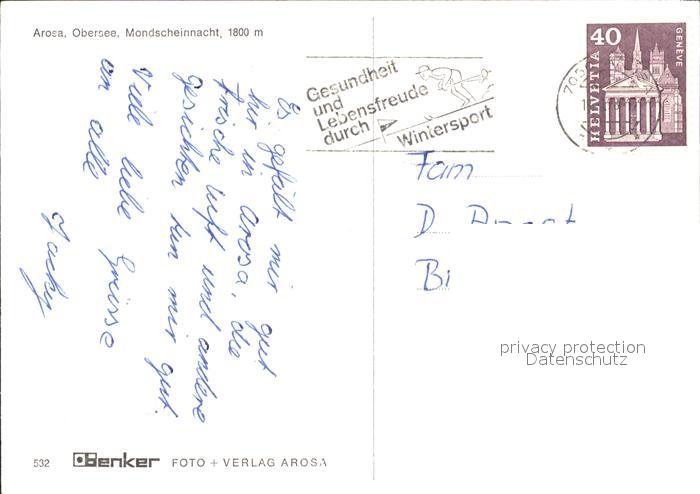 Arosa, Obersee, Mondscheinnacht, 1800 m
Es gefällt mir gut
hir in Arosa, die
frische luft und andere
gesichter tun mir gut.
Viele liebe Grüsse
an alle
Jacky
Gesundheit
und
Lebensfreude
durch
Wintersport
HELVETIA
40
GENÈVE
Fam
D
Bi
privacy protection
Datenschutz
532 Benker FOTO + VERLAG AROSA